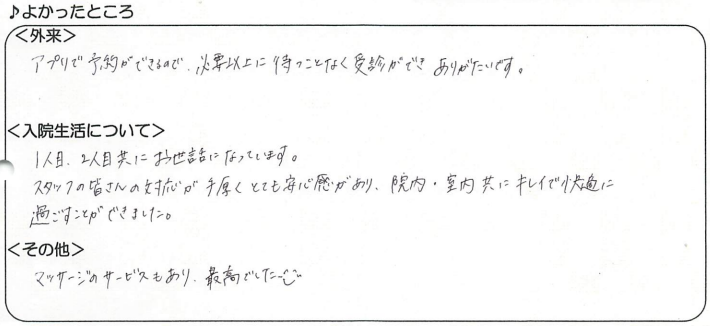 ♪よかったところ
<外来>
アプリで予約ができるので、必要以上に待つことなく受診ができありがたいです。
<入院生活について>
1人目、2人目共にお世話になっています。
スタッフの皆さんの対応が手厚くとても安心感があり、院内・室内共にキレイで快適に
過ごすことができました。
<その他>
マッサージのサービスもあり、最高でした